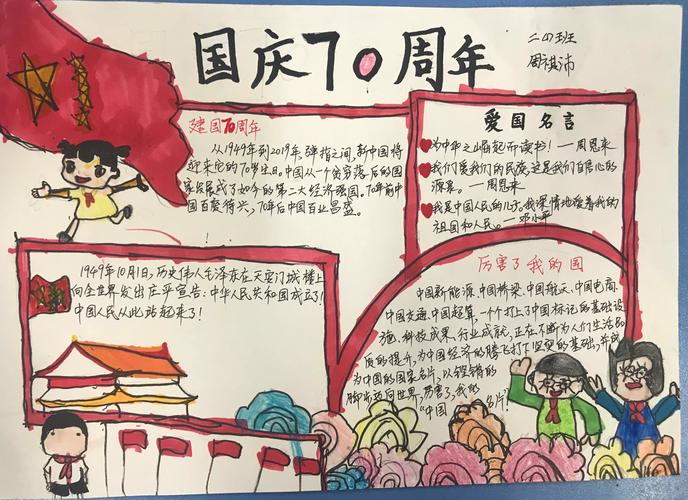 国庆70周年
二(4)班
周祺沛
建国70周年
从1949年到2019年,弹指之间,新中国将
迎来它的70岁生日。中国从一个贫穷落后的国
家发展成了如今的第二大经济强国。70年前中
国百废待兴,70年后中国百业昌盛。
爱国名言
为中华之崛起而读书!——周恩来
我们爱我们的民族,这是我们自信心的
源泉。——周恩来
我是中国人民的儿子。我深情地爱着我的
祖国和人民。——邓小平
1949年10月1日,历史伟人毛泽东在天安门城楼上
向全世界发出庄严宣告:中华人民共和国成立了!
中国人民从此站起来了!
厉害了我的国
中国新能源、中国桥梁、中国航天、中国电商、
中国交通、中国超算,一个个打上了中国标记的基础设
施、科技成果、行业成就,正在不断为人们生活品
质的提升,为中国经济的腾飞打下坚实的基础,并成
为中国的国家名片,以铿锵的
脚步迈向世界,厉害了,我的
“中国名片!